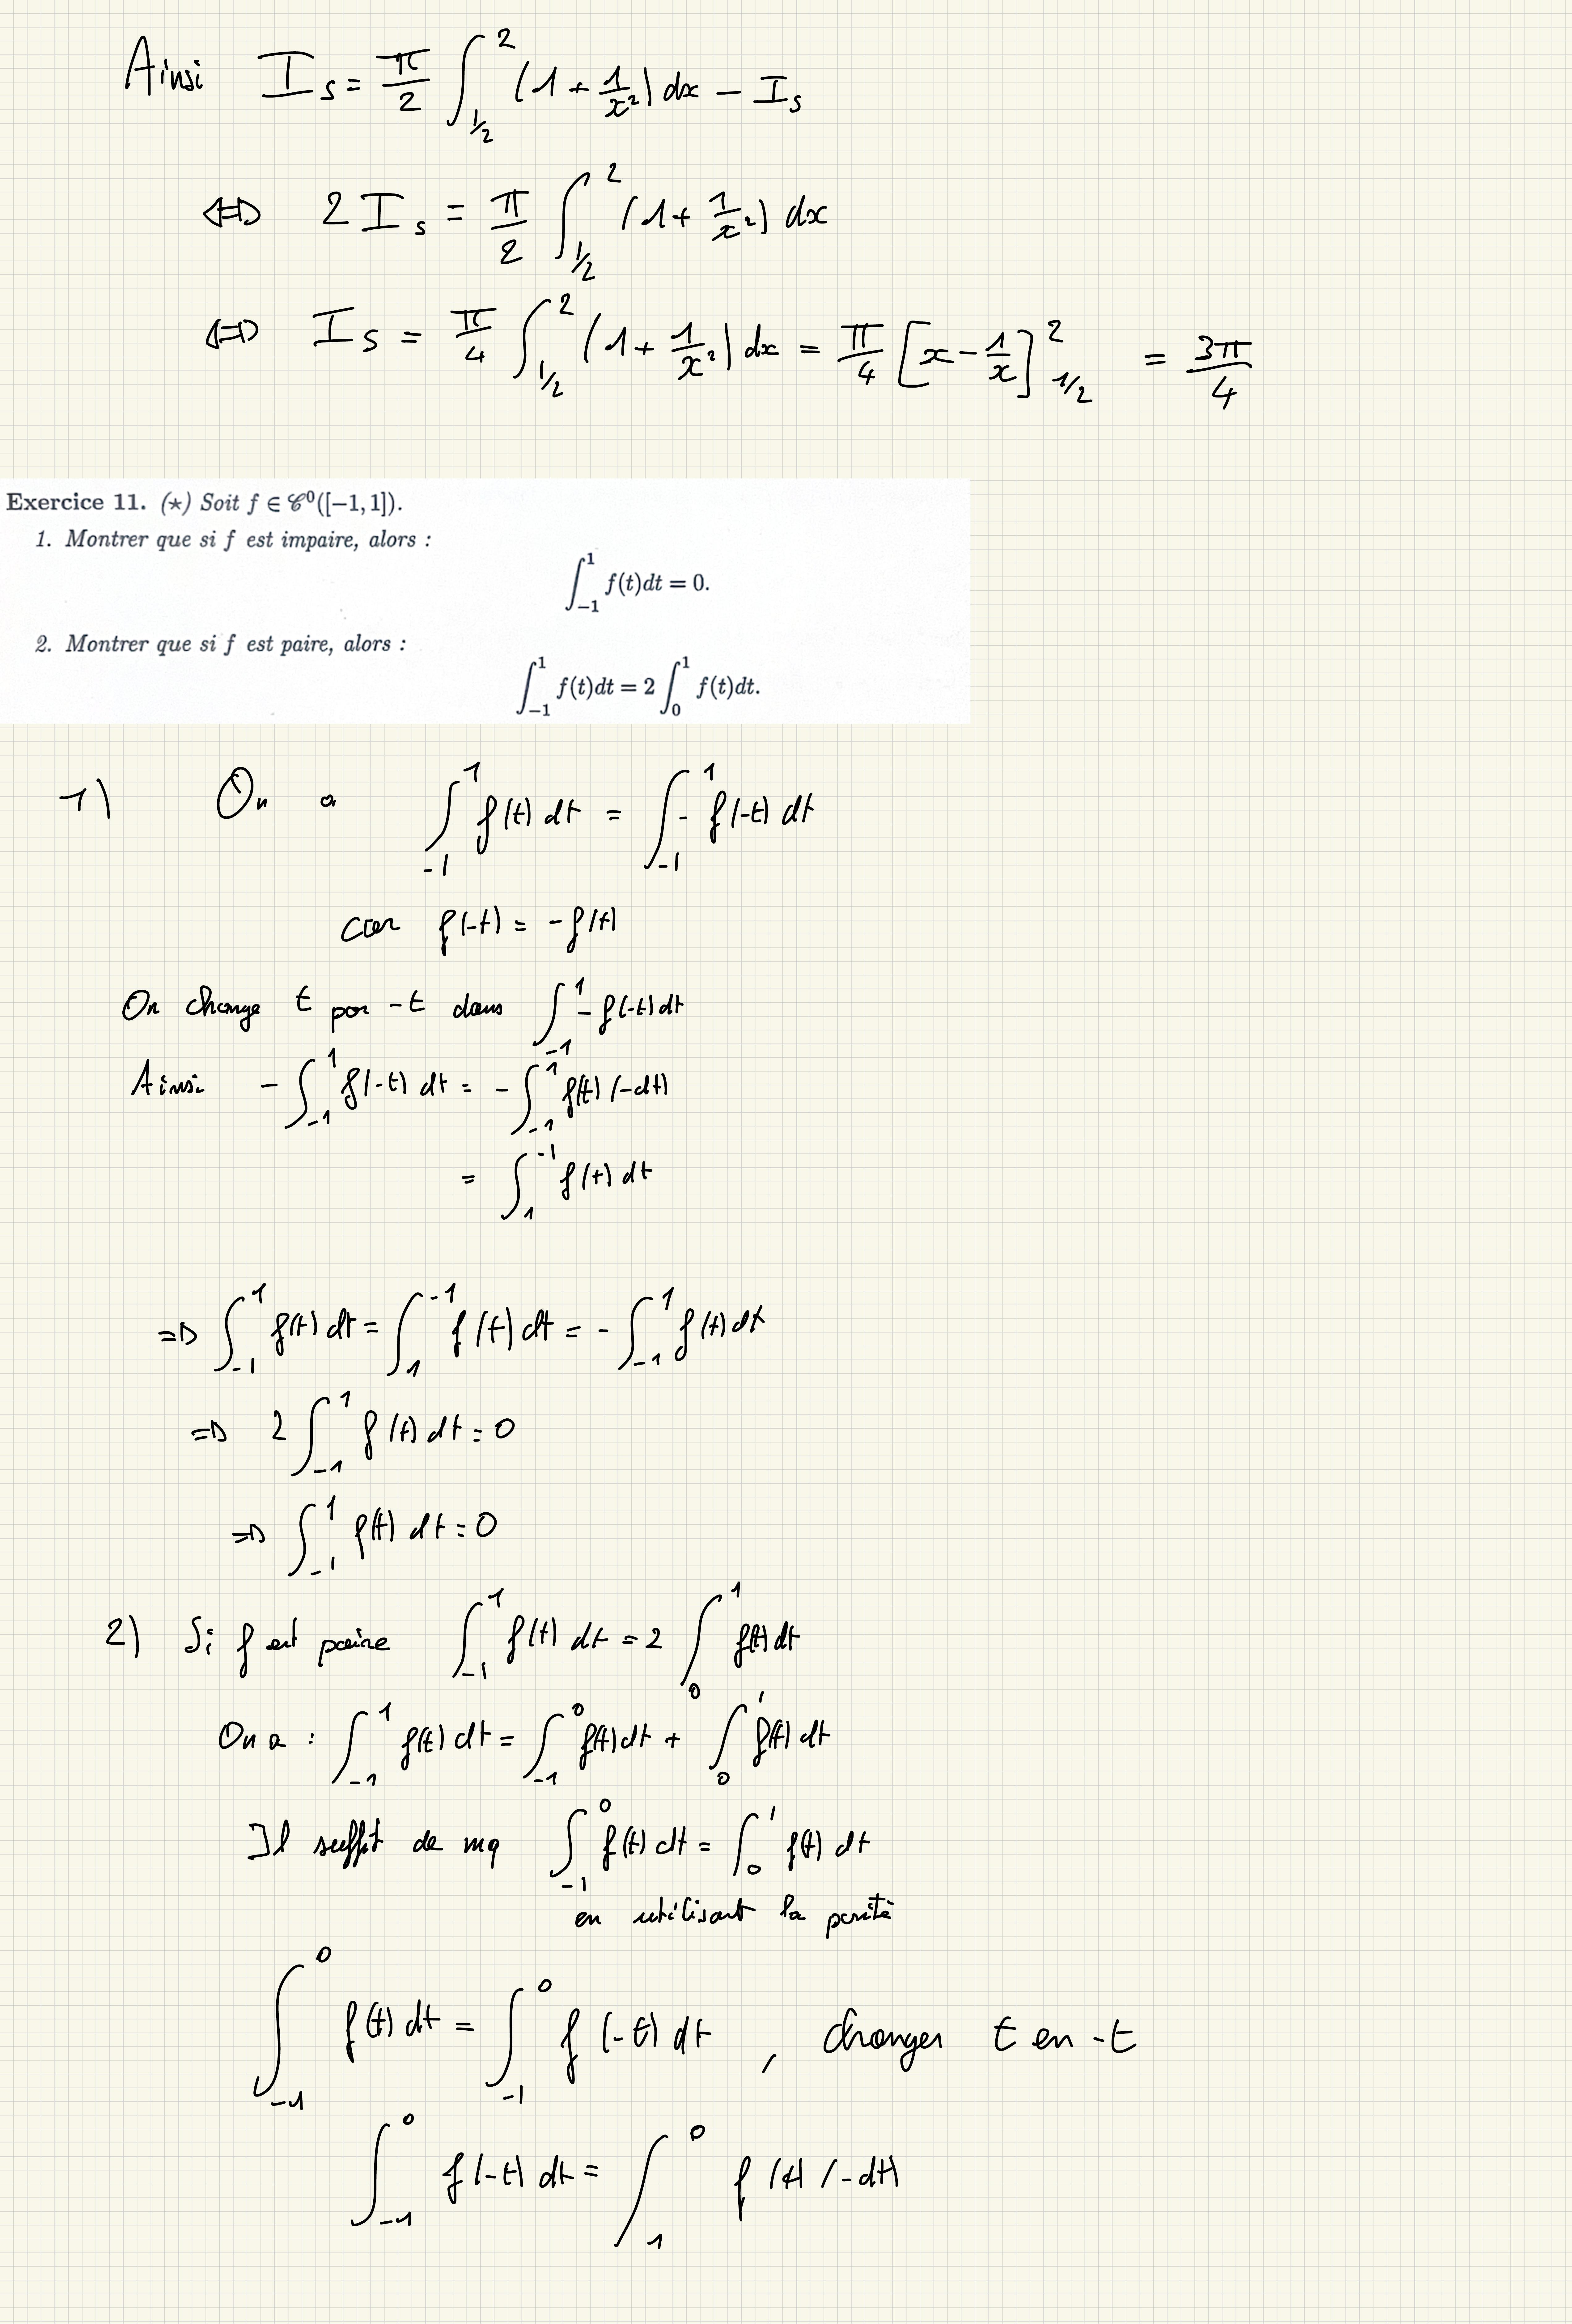 Ainsi I_5 = π/2 ∫_{1/2}^{2} (1 + 1/x²) dx - I_5
⇔ 2 I_5 = π/2 ∫_{1/2}^{2} (1 + 1/x²) dx
⇔ I_5 = π/4 ∫_{1/2}^{2} (1 + 1/x²) dx = π/4 [x - 1/x]_{1/2}^{2} = 3π/4
Exercice 11. (⋆) Soit f ∈ 𝒞⁰([−1, 1]).
1. Montrer que si f est impaire, alors :
∫_{−1}^{1} f(t)dt = 0.
2. Montrer que si f est paire, alors :
∫_{−1}^{1} f(t)dt = 2 ∫_{0}^{1} f(t)dt.
1) On a ∫_{-1}^{1} f(t) dt = ∫_{-1}^{1} - f(-t) dt
car f(-t) = -f(t)
On change t par -t dans ∫_{-1}^{1} - f(-t) dt
Ainsi - ∫_{-1}^{1} f(-t) dt = - ∫_{-1}^{1} f(t) (-dt)
= ∫_{1}^{-1} f(t) dt
=> ∫_{-1}^{1} f(t) dt = ∫_{1}^{-1} f(t) dt = - ∫_{-1}^{1} f(t) dt
=> 2 ∫_{-1}^{1} f(t) dt = 0
=> ∫_{-1}^{1} f(t) dt = 0
2) Si f est paire ∫_{-1}^{1} f(t) dt = 2 ∫_{0}^{1} f(t) dt
On a : ∫_{-1}^{1} f(t) dt = ∫_{-1}^{0} f(t) dt + ∫_{0}^{1} f(t) dt
Il suffit de mq ∫_{-1}^{0} f(t) dt = ∫_{0}^{1} f(t) dt
en utilisant la parité
∫_{-1}^{0} f(t) dt = ∫_{-1}^{0} f(-t) dt , changer t en -t
∫_{-1}^{0} f(-t) dt = ∫_{1}^{0} f(t) (-dt)